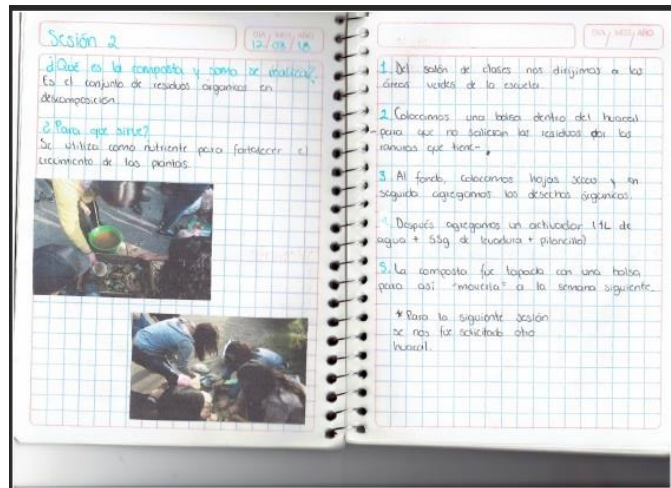 Sesión 2
DIA/MES/AÑO
12/03/18
¿Qué es la composta y como se realiza?
Es el conjunto de residuos organicos en
descomposición.
¿Para que sirve?
Se utiliza como nutriente para fortalecer el
crecimiento de las plantas.
DIA/MES/AÑO
1. Del salón de clases nos dirijimos a las
áreas verdes de la escuela.
2. Colocamos una bolsa dentro del huacal
-para que no salieran los residuos por las
ranuras que tiene-.
3. Al fondo, colocamos hojas secas y en
seguida agregamos los desechos órganicos.
4. Después agregamos un activador (1L de
agua + 55g de levadura + piloncillo)
5. La composta fue tapada con una bolsa
para así "moverla" a la semana siguiente.
* Para la siguiente sesión
se nos fue solicitado otro
huacal.